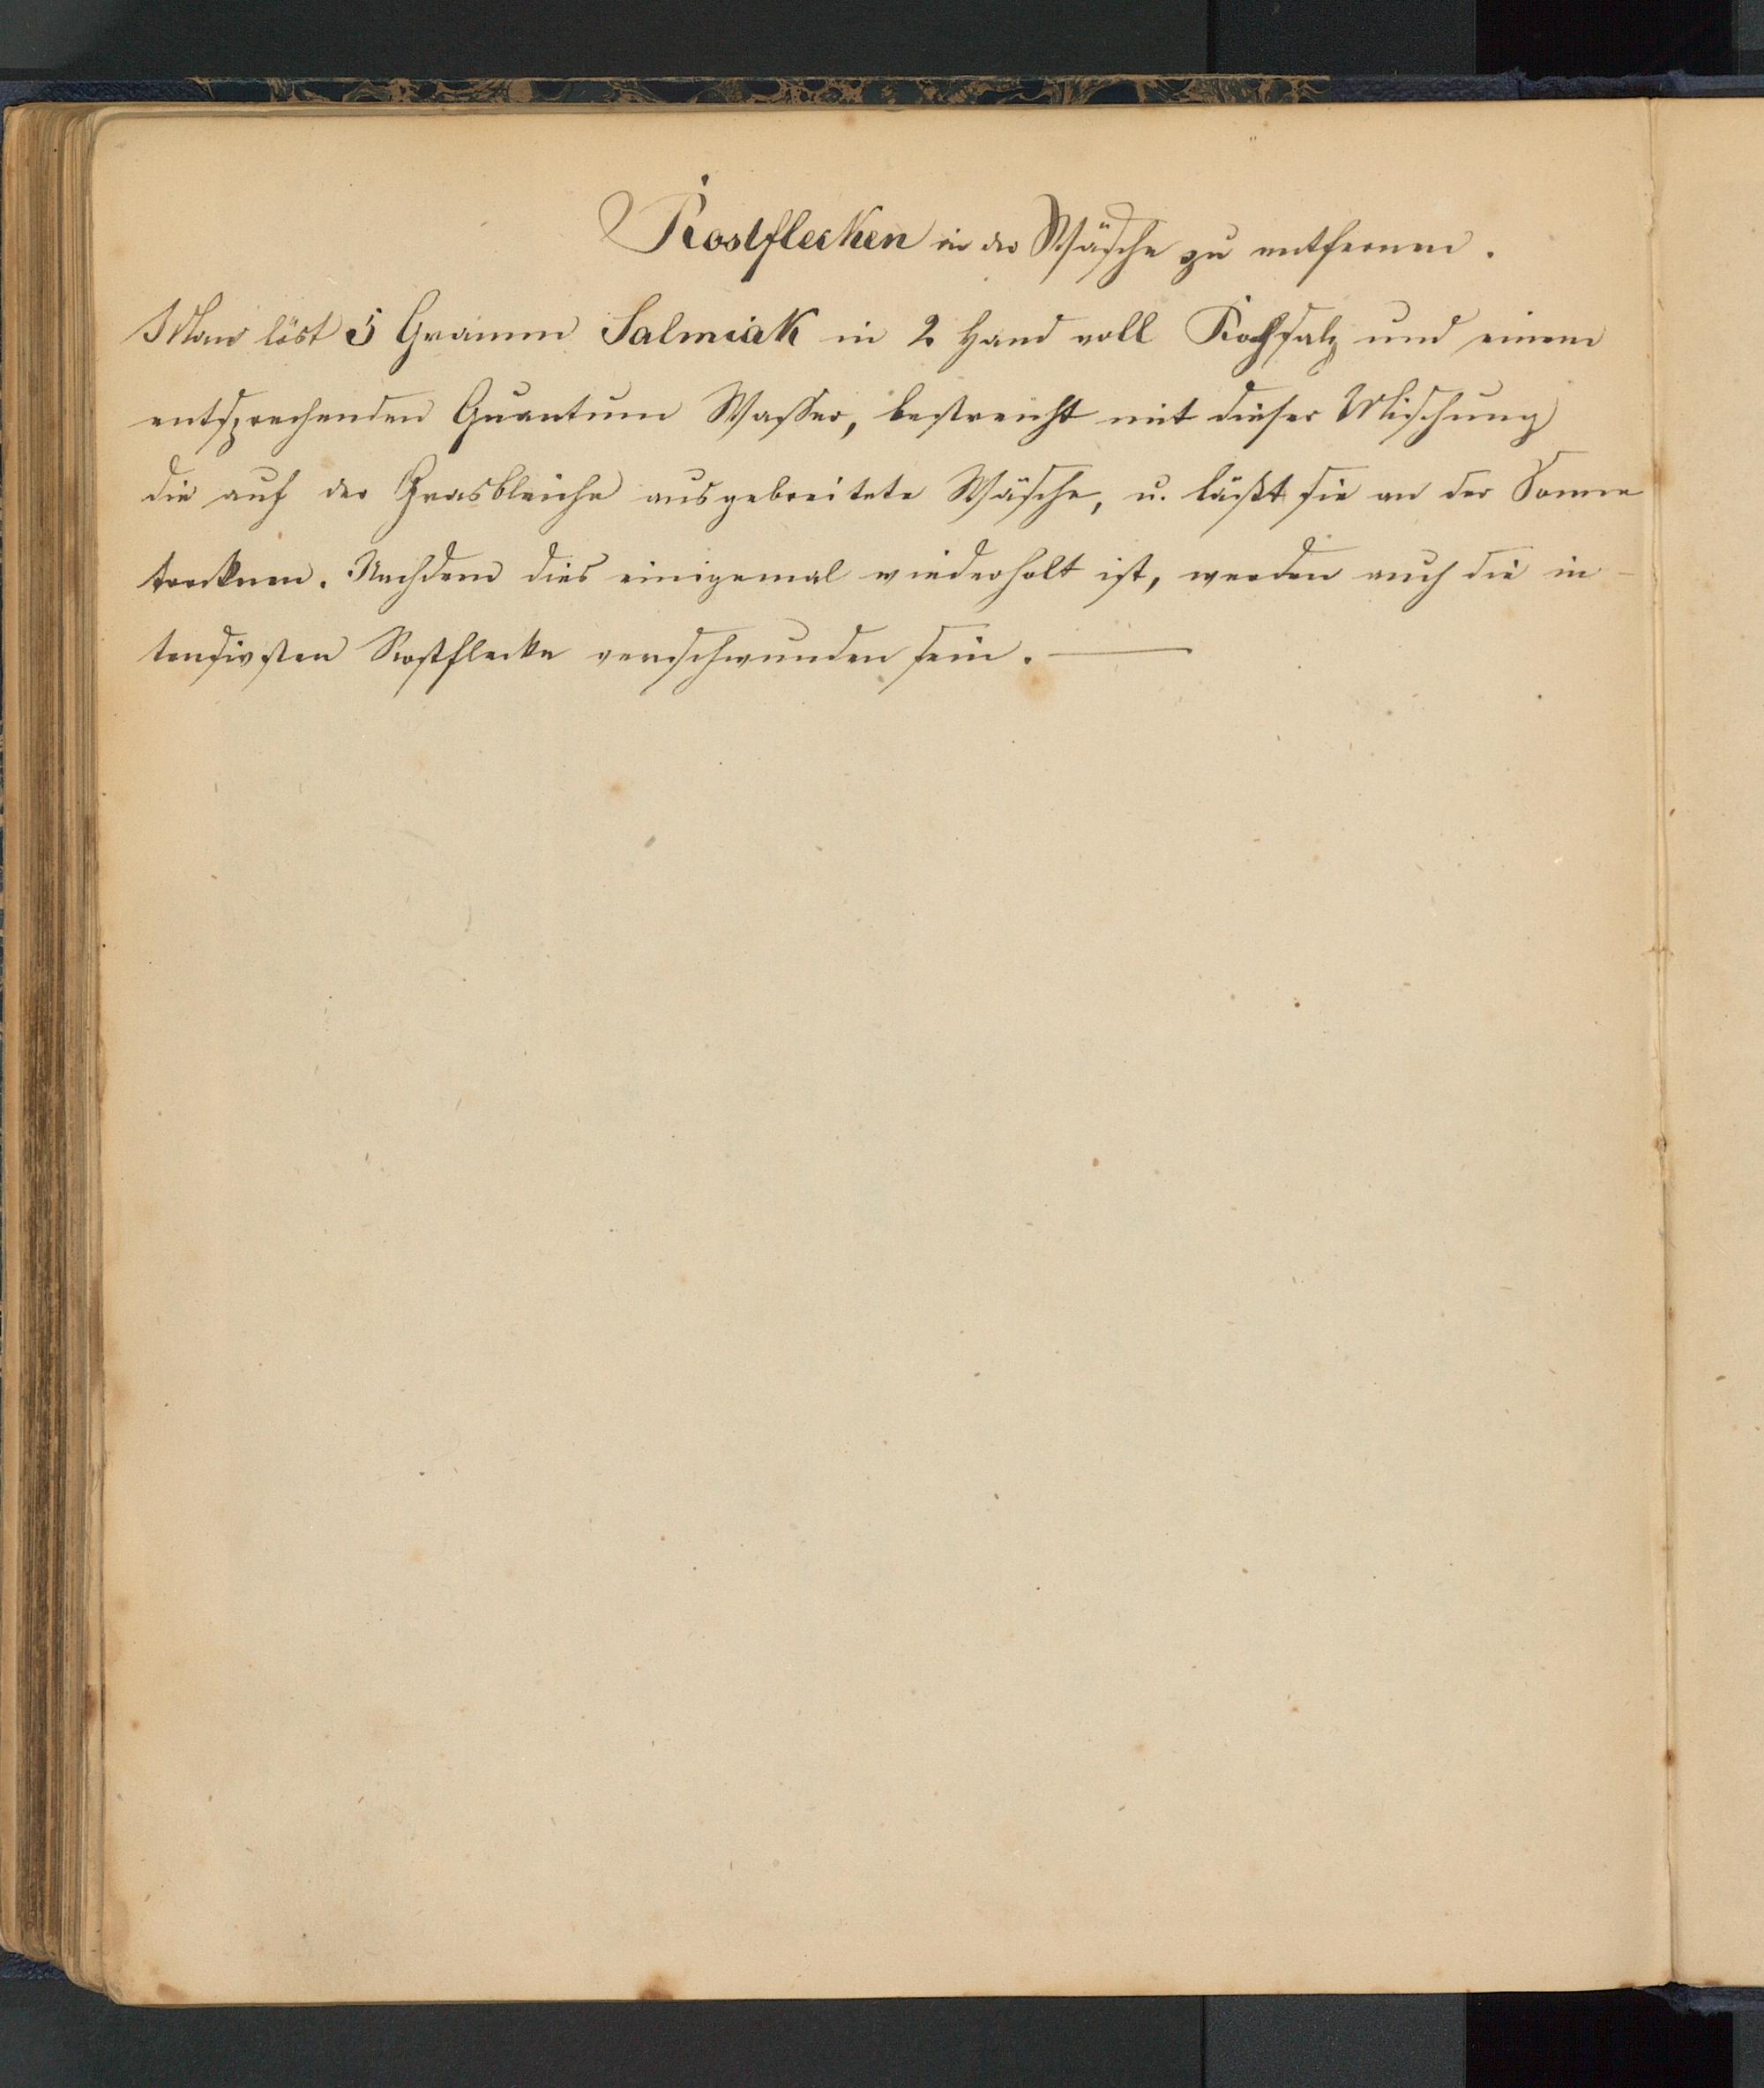 Rostflecken in der Wäsche zu entfernen.
Man löst 5 Gramm Salmiak in 2 Hand voll Kochsalz und einem
entsprechenden Quantum Wasser, bestreicht mit dieser Mischung
die auf der Grasbleiche ausgebreitete Wäsche, u. läßt sie an der Sonne
trocknen. Nachdem dies einigemal wiederholt ist, werden auch die in-
tensivsten Rostflecke verschwunden sein. —